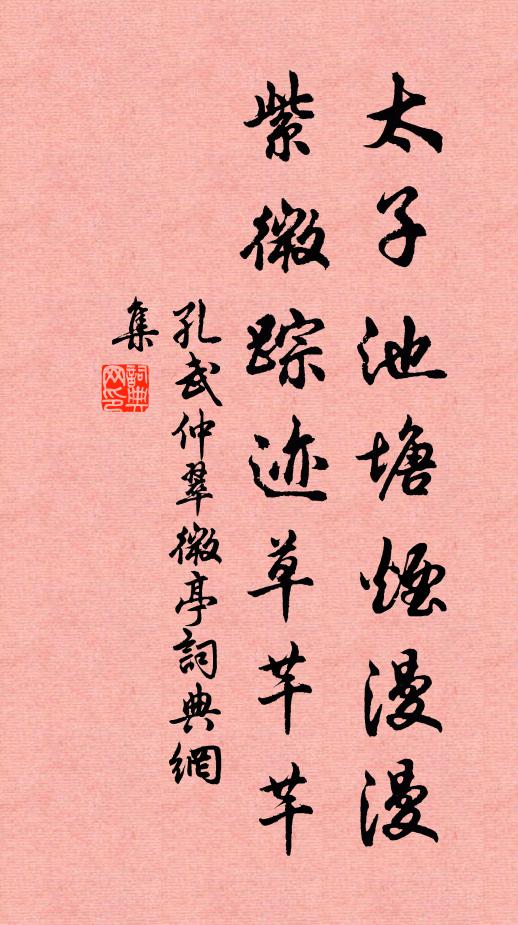 太子池塘煙漫漫
紫微踪迹草芊芊
孔武仲翠微亭詞典網
集
詞典网印